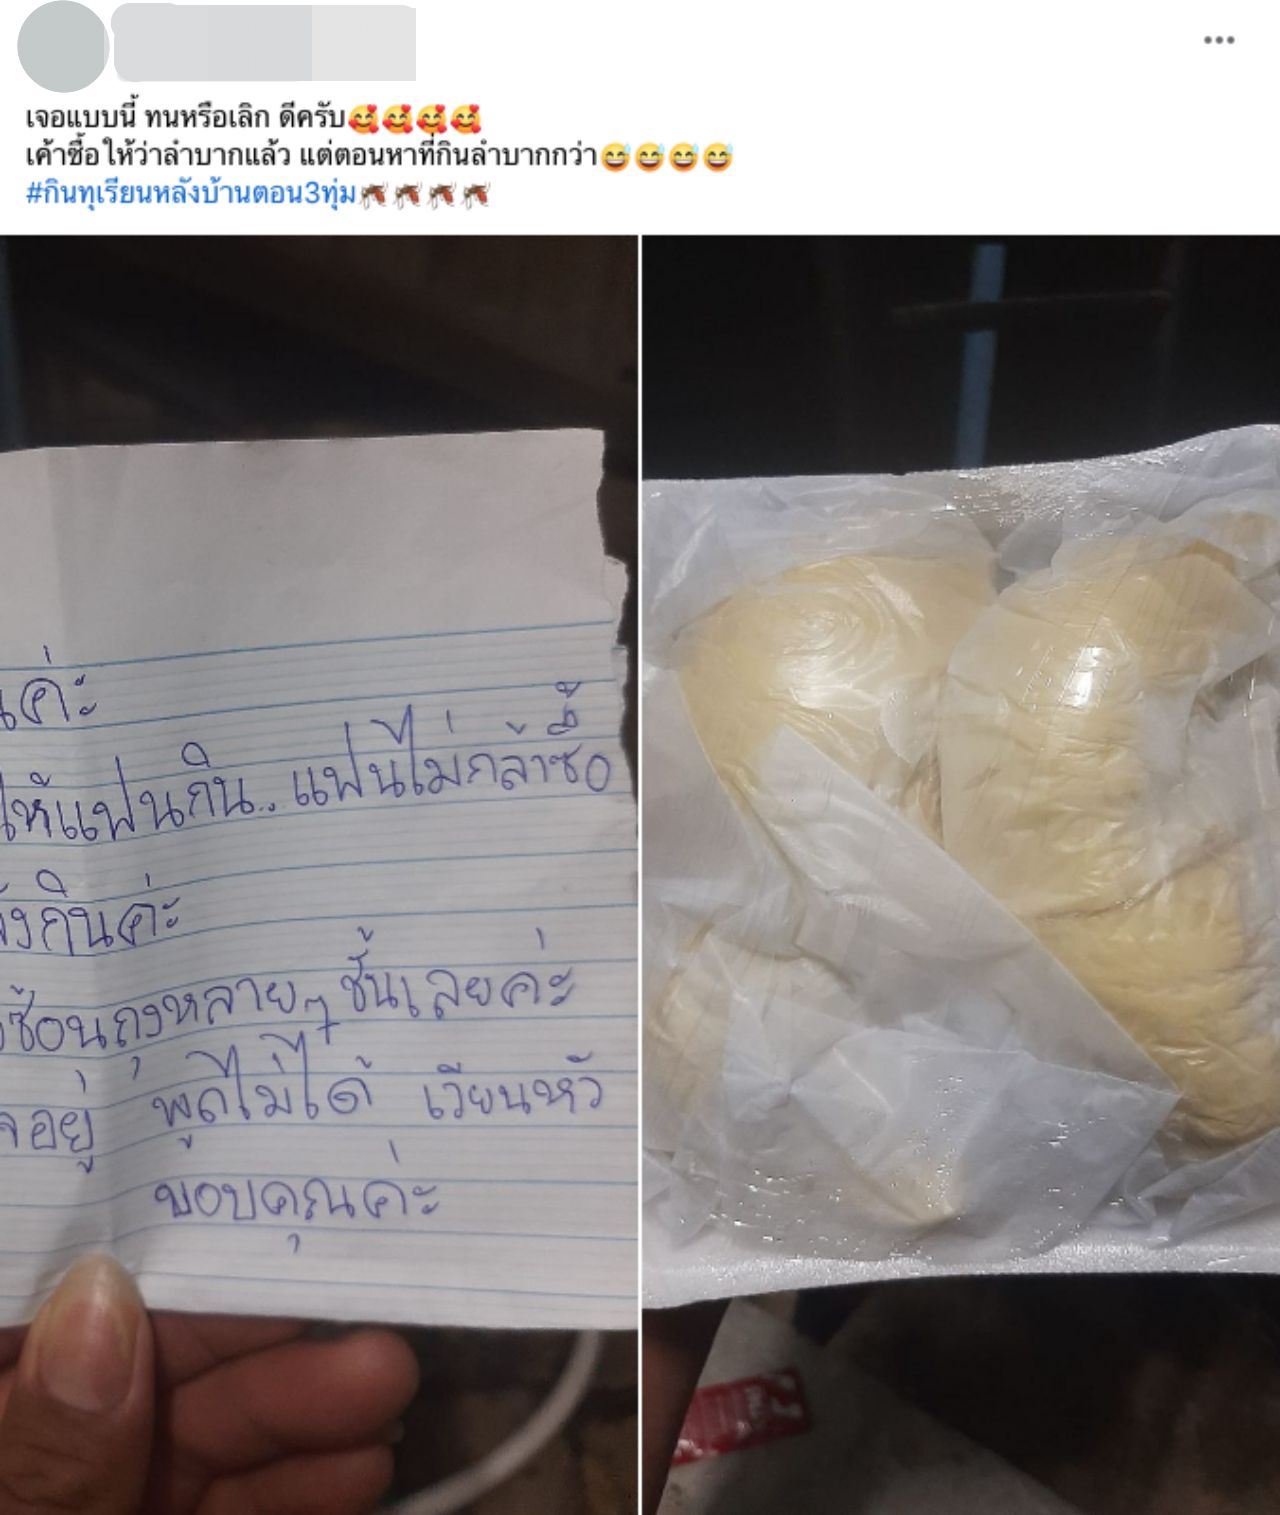 เจอแบบนี้ ทนหรือเลิก ดีครับ🥰🥰🥰🥰
เค้าซื้อให้ว่าลำบากแล้ว แต่ตอนหาที่กินลำบากกว่า😅😅😅😅
#กินทุเรียนหลังบ้านตอน3ทุ่ม🦟🦟🦟🦟
ค่ะ
ให้แฟนกิน.. แฟนไม่กล้าซื้อ
กินค่ะ
ซ้อนถุงหลายๆ ชั้นเลยค่ะ
อยู่ พูดไม่ได้ เวียนหัว
ขอบคุณค่ะ